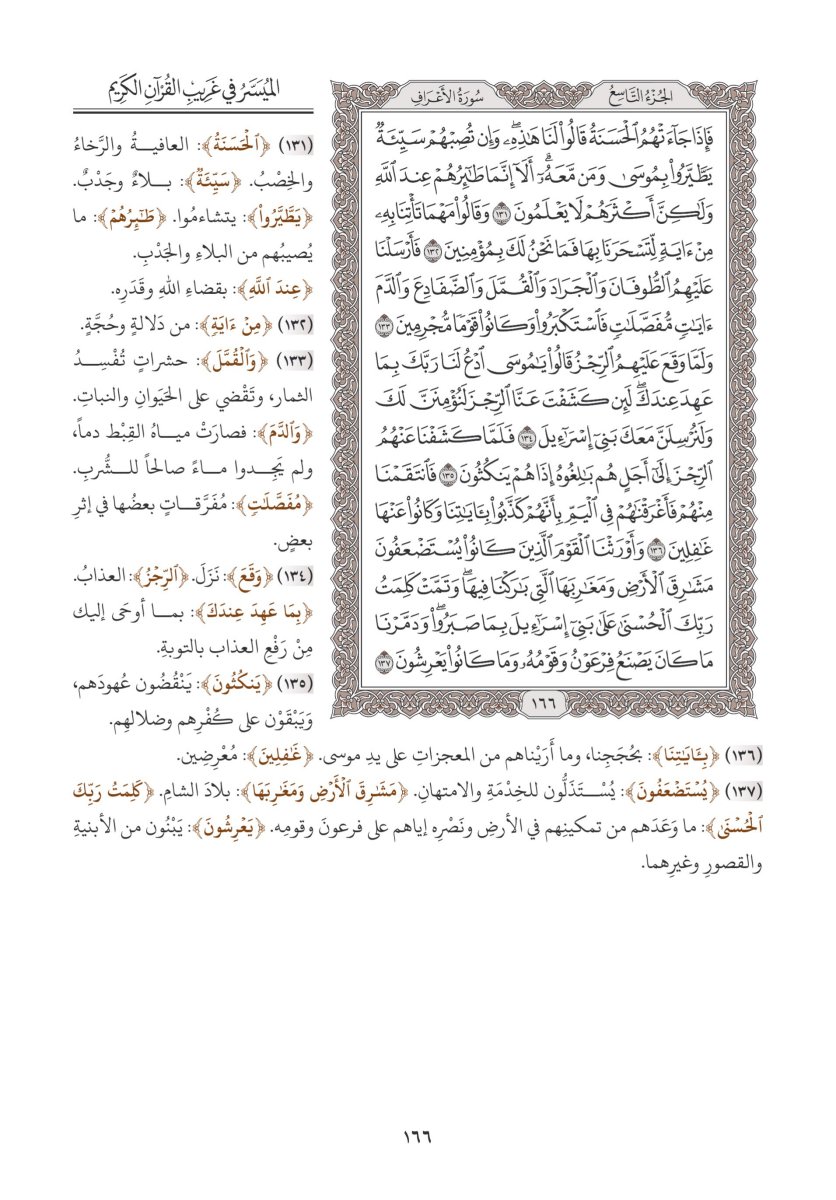 الميَسَّرُ في غَرِيبِ القُرْآنِ الكَرِيمِ
الجُزْءُ التَّاسِعُ
سُورَةُ الأَعْرَافِ
فَإِذَا جَآءَتْهُمُ ٱلْحَسَنَةُ قَالُوا۟ لَنَا هَٰذِهِۦۖ وَإِن تُصِبْهُمْ سَيِّئَةٌ
يَطَّيَّرُوا۟ بِمُوسَىٰ وَمَن مَّعَهُۥٓۗ أَلَآ إِنَّمَا طَٰٓئِرُهُمْ عِندَ ٱللَّهِ
وَلَٰكِنَّ أَكْثَرَهُمْ لَا يَعْلَمُونَ ١٣١ وَقَالُوا۟ مَهْمَا تَأْتِنَا بِهِۦ
مِنْ ءَايَةٍ لِّتَسْحَرَنَا بِهَا فَمَا نَحْنُ لَكَ بِمُؤْمِنِينَ ١٣٢ فَأَرْسَلْنَا
عَلَيْهِمُ ٱلطُّوفَانَ وَٱلْجَرَادَ وَٱلْقُمَّلَ وَٱلضَّفَادِعَ وَٱلدَّمَ
ءَايَٰتٍ مُّفَصَّلَٰتٍ فَٱسْتَكْبَرُوا۟ وَكَانُوا۟ قَوْمًا مُّجْرِمِينَ ١٣٣
وَلَمَّا وَقَعَ عَلَيْهِمُ ٱلرِّجْزُ قَالُوا۟ يَٰمُوسَى ٱدْعُ لَنَا رَبَّكَ بِمَا
عَهِدَ عِندَكَۖ لَئِن كَشَفْتَ عَنَّا ٱلرِّجْزَ لَنُؤْمِنَنَّ لَكَ
وَلَنُرْسِلَنَّ مَعَكَ بَنِىٓ إِسْرَٰٓءِيلَ ١٣٤ فَلَمَّا كَشَفْنَا عَنْهُمُ
ٱلرِّجْزَ إِلَىٰٓ أَجَلٍ هُم بَٰلِغُوهُ إِذَا هُمْ يَنكُثُونَ ١٣٥ فَٱنتَقَمْنَا
مِنْهُمْ فَأَغْرَقْنَٰهُمْ فِى ٱلْيَمِّ بِأَنَّهُمْ كَذَّبُوا۟ بِـَٔايَٰتِنَا وَكَانُوا۟ عَنْهَا
غَٰفِلِينَ ١٣٦ وَأَوْرَثْنَا ٱلْقَوْمَ ٱلَّذِينَ كَانُوا۟ يُسْتَضْعَفُونَ
مَشَٰرِقَ ٱلْأَرْضِ وَمَغَٰرِبَهَا ٱلَّتِى بَٰرَكْنَا فِيهَاۖ وَتَمَّتْ كَلِمَتُ
رَبِّكَ ٱلْحُسْنَىٰ عَلَىٰ بَنِىٓ إِسْرَٰٓءِيلَ بِمَا صَبَرُوا۟ۖ وَدَمَّرْنَا
مَا كَانَ يَصْنَعُ فِرْعَوْنُ وَقَوْمُهُۥ وَمَا كَانُوا۟ يَعْرِشُونَ ١٣٧
١٦٦
(١٣١) ﴿ٱلْحَسَنَةُ﴾: العافيـــةُ والرَّخاءُ
والخِصْبُ. ﴿سَيِّئَةٌ﴾: بـــلاءٌ وجَدْبٌ.
﴿يَطَّيَّرُوا۟﴾: يتشاءمُوا. ﴿طَٰٓئِرُهُمْ﴾: ما
يُصيبُهم من البلاءِ والجَدْبِ.
﴿عِندَ ٱللَّهِ﴾: بقضاءِ اللهِ وقَدَرِه.
(١٣٢) ﴿مِنْ ءَايَةٍ﴾: من دَلالةٍ وحُجَّةٍ.
(١٣٣) ﴿وَٱلْقُمَّلَ﴾: حشراتٍ تُفْسِــدُ
الثمار، وتَقْضي على الحَيَوانِ والنباتِ.
﴿وَٱلدَّمَ﴾: فصارَتْ ميــاهُ القِبْط دماً،
ولم يَجِــدوا مــاءً صالحاً للــشُّربِ.
﴿مُفَصَّلَٰتٍ﴾: مُفَرَّقــاتٍ بعضُها في إثرِ
بعضٍ.
(١٣٤) ﴿وَقَعَ﴾: نَزَلَ. ﴿ٱلرِّجْزُ﴾: العذابُ.
﴿بِمَا عَهِدَ عِندَكَ﴾: بمــا أوحَى إليك
مِنْ رَفْعِ العذاب بالتوبةِ.
(١٣٥) ﴿يَنكُثُونَ﴾: يَنْقُضُون عُهودَهم،
وَيَبْقَوْن على كُفْرِهم وضلالهِم.
(١٣٦) ﴿بِـَٔايَٰتِنَا﴾: بحُجَجِنا، وما أَرَيْناهم من المعجزاتِ على يدِ موسى. ﴿غَٰفِلِينَ﴾: مُعْرِضِين.
(١٣٧) ﴿يُسْتَضْعَفُونَ﴾: يُسْــتَذَلُّون للخِدْمَةِ والامتهانِ. ﴿مَشَٰرِقَ ٱلْأَرْضِ وَمَغَٰرِبَهَا﴾: بلادَ الشامِ. ﴿كَلِمَتُ رَبِّكَ
ٱلْحُسْنَىٰ﴾: ما وَعَدَهم من تمكينِهم في الأرضِ ونَصْرِه إياهم على فرعونَ وقومِه. ﴿يَعْرِشُونَ﴾: يَبْنُون من الأبنيةِ
والقصورِ وغيرِهما.
١٦٦